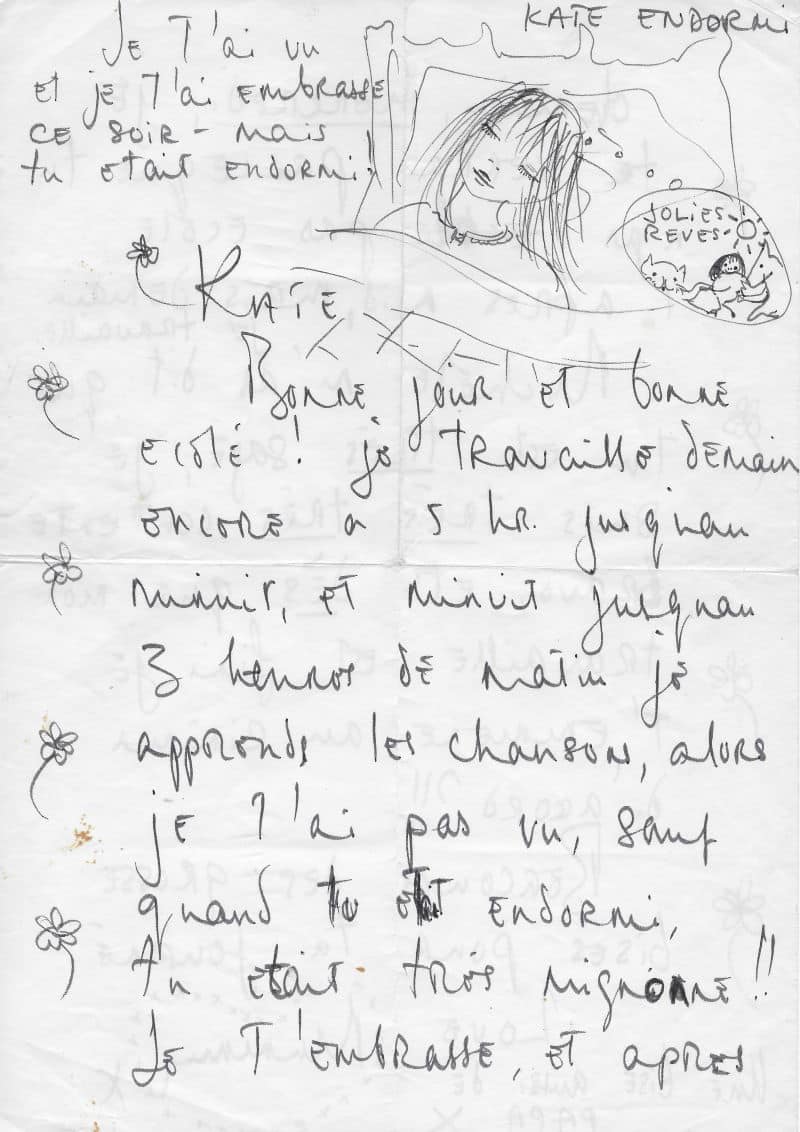 KATE ENDORMI
Je T'ai vu
et je T'ai EMBRASSÉ
CE SOIR - MAIS
tu etait ENDORMI!
JOLIES
REVES
KATE
BONNE jour et bonne
école! je TRAVAille demain
encore a 5 hr. jusquau
minuit, et minuit jusquau
3 heures de matin je
apprends les chanson, alors
je T'ai pas vu, sauf
quand tu était ENDORMI,
tu etait très mignonne!!
Je T'EMBRASSE, et apres